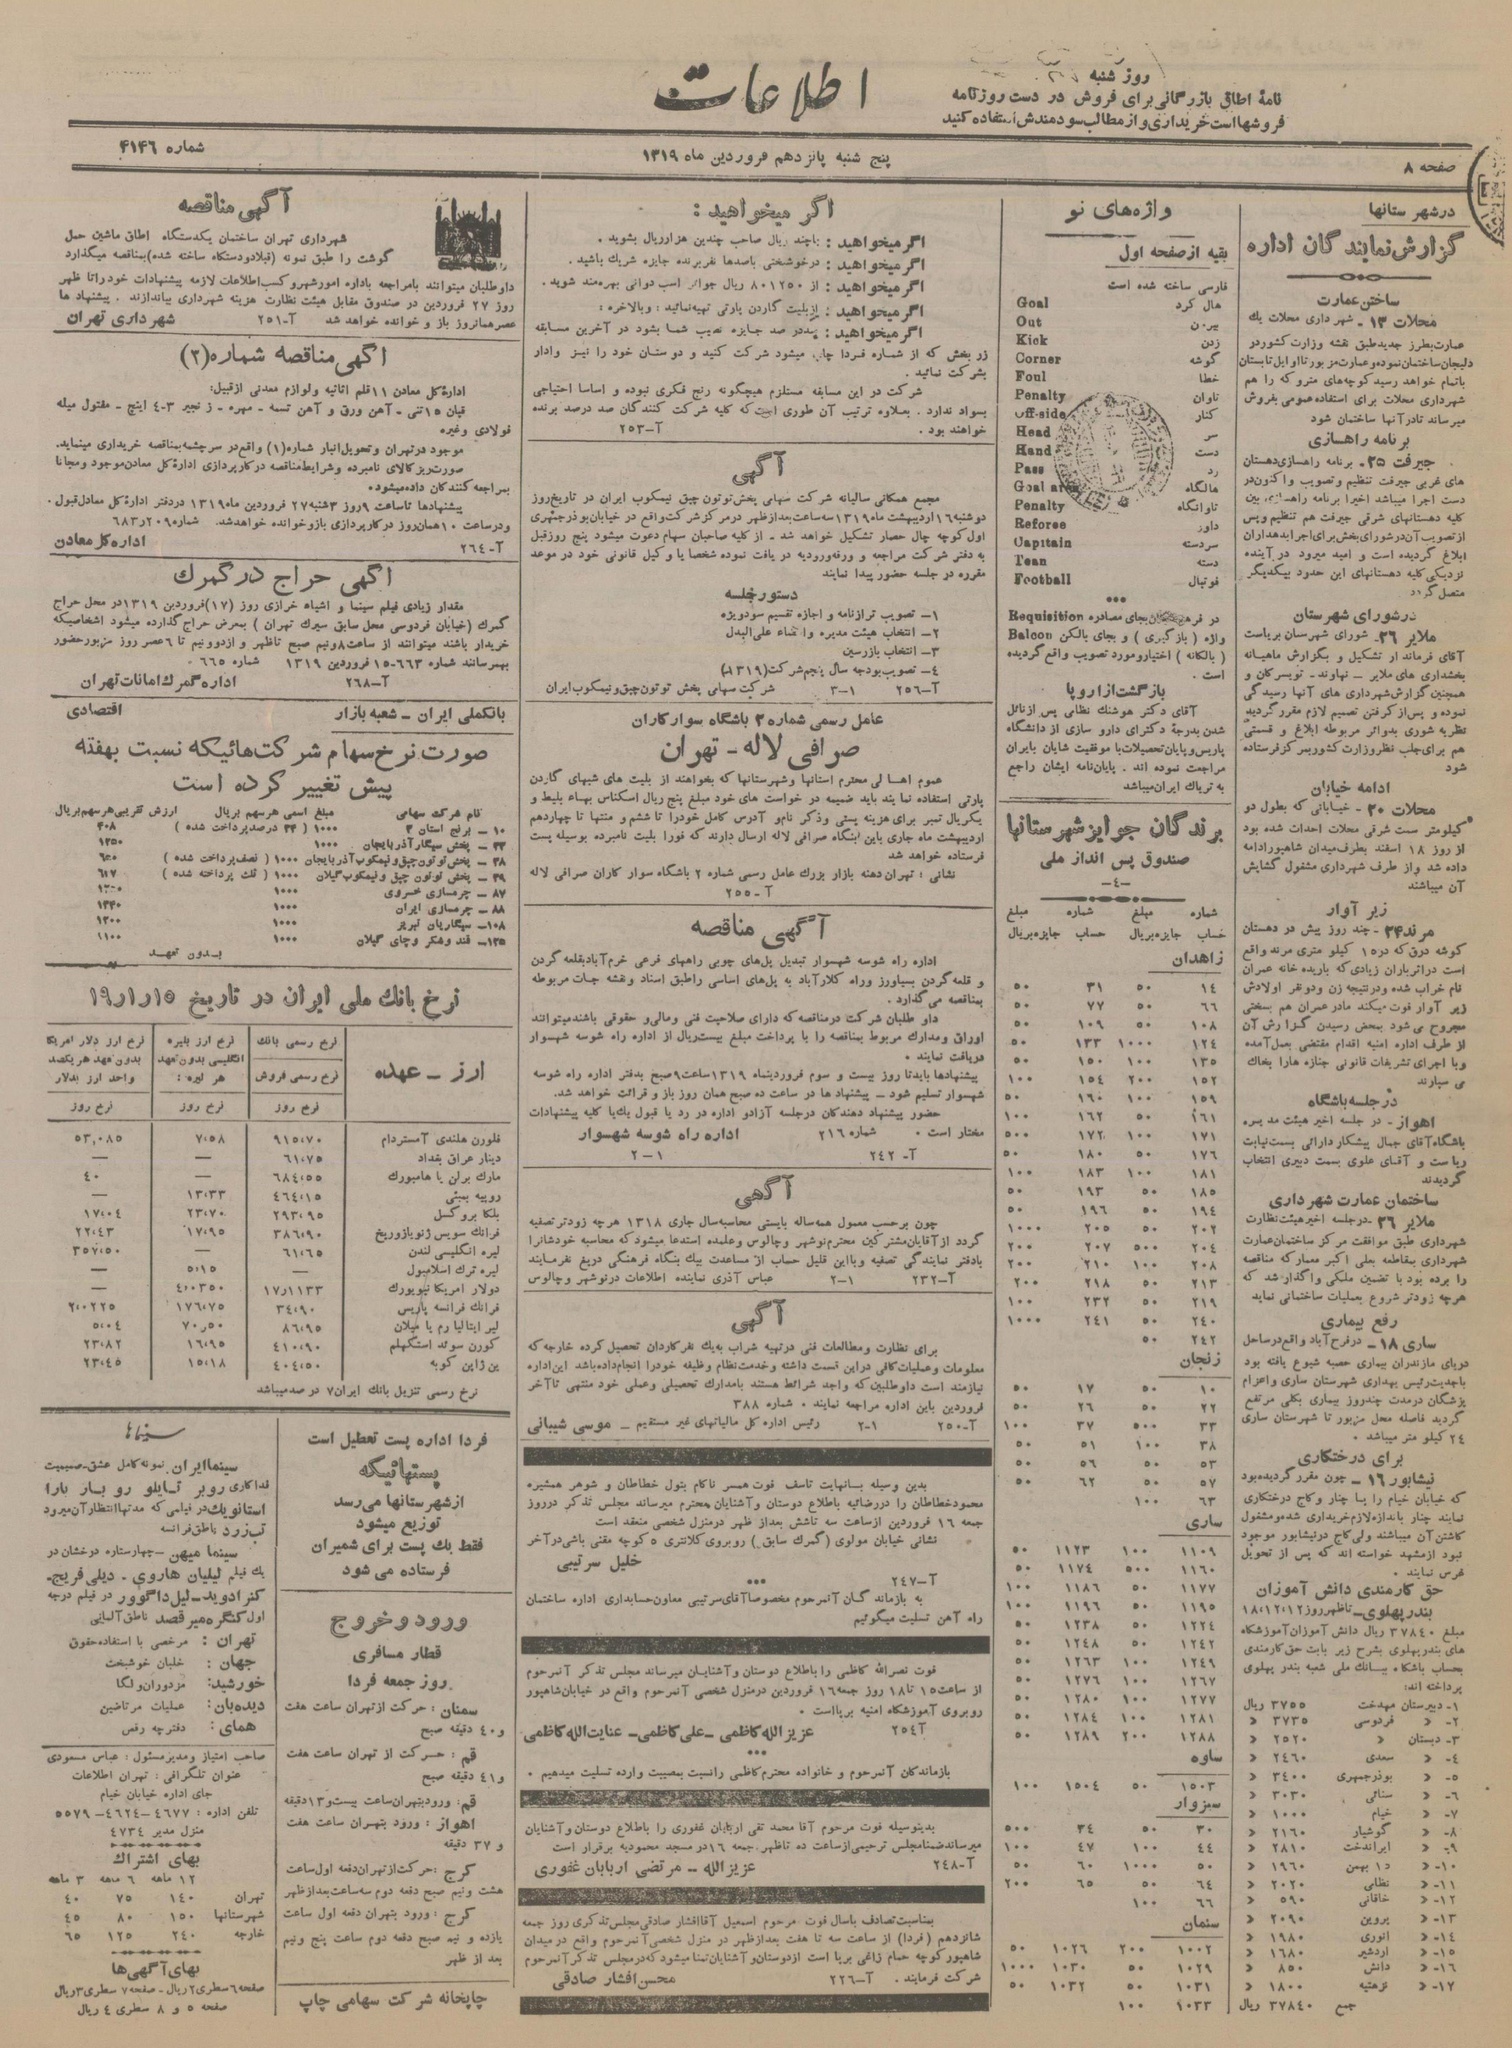 روز شنبه
نامهٔ اطاق بازرگانی برای فروش در دست روزنامه
فروشها است خریداری و از مطالب سودمندش استفاده کنید
اطلاعات
صفحه ۸
پنج شنبه پانزدهم فروردین ماه ۱۳۱۹
شماره ۴۱۴۶
در شهرستانها
گزارش نمایندگان اداره
ساختن عمارت
محلات ۱۳ ـ شهرداری محلات یك
عمارت بطرز جدید طبق نقشه وزارت کشور در
دلیجان ساختمان نموده و عمارت مزبور تا اوایل تابستان
باتمام خواهد رسید کوچه‌های متروکه را هم
شهرداری محلات برای استفاده عمومی بفروش
میرساند تا در آنها ساختمان شود
برنامه راهسازی
جیرفت ۲۵ـ برنامه راهسازی دهستان
های غربی جیرفت تنظیم و تصویب و اکنون در
دست اجرا میباشد اخیرا برنامه راهسازی بین
کلیه دهستانهای شرقی جیرفت هم تنظیم و پس
از تصویب آن در شورای بخش برای اجرا بدهداران
ابلاغ گردیده است و امید میرود در آینده
نزدیکی کلیه دهستانهای این حدود بیکدیگر
متصل گردد
در شورای شهرستان
ملایر ۲۶ـ شورای شهرستان بریاست
آقای فرماندار تشکیل و بگزارش ماهیانه
بخشداری های ملایر ـ نهاوند ـ تویسرکان و
همچنین گزارش شهرداری های آنها رسیدگی
نموده و پس از گرفتن تصمیم لازم مقرر گردید
نظریه شوری بدوائر مربوطه ابلاغ و قسمتی
هم برای جلب نظر وزارت کشور بمرکز فرستاده
شود
ادامه خیابان
محلات ۲۰ ـ خیابانی که بطول دو
کیلومتر سمت شرقی محلات احداث شده بود
از روز ۱۸ اسفند بطرف میدان شاهپور ادامه
داده شد و از طرف شهرداری مشغول گشایش
آن میباشند
زیر آوار
مرند ۲۴ ـ چند روز پیش در دهستان
کوشه درق که در ۱۵ کیلو متری مرند واقع
است در اثر باران زیادی که باریده خانه عمران
نام خراب شده و در نتیجه زن و دو نفر اولادش
زیر آوار فوت میکند مادر عمران هم بسختی
مجروح می شود بمحض رسیدن گزارش آن
از طرف اداره امنیه اقدام مقتضی بعمل آمده
و با اجرای تشریفات قانونی جنازه هارا بخاك
می سپارند
در جلسه باشگاه
اهواز ـ در جلسه اخیر هیئت مدیره
باشگاه آقای جمال پیشکار دارائی بسمت نیابت
ریاست و آقای علوی بسمت دبیری انتخاب
گردیدند
ساختمان عمارت شهرداری
ملایر ۲۶ ـ در جلسه اخیر هیئت نظارت
شهرداری طبق موافقت مرکز ساختمان عمارت
شهرداری بمقاطعه بعلی اکبر معمار که مناقصه
را برده بود با تضمین ملکی واگذار شد که
هرچه زودتر شروع بعملیات ساختمانی نماید
رفع بیماری
ساری ۱۸ ـ در فرح آباد واقع در ساحل
دریای مازندران بیماری حصبه شیوع یافته بود
با جدیت رئیس بهداری شهرستان ساری و اعزام
پزشگان در مدت چند روز بیماری بکلی مرتفع
گردید فاصله محل مزبور تا شهرستان ساری
۲۴ کیلو متر میباشد .
برای درختکاری
نیشابور ۱۶ ـ چون مقرر گردیده بود
که خیابان خیام را با چنار و کاج درختکاری
نمایند چنار باندازه لازم خریداری شده و مشغول
کاشتن آن میباشند ولی کاج در نیشابور موجود
نبود از مشهد خواسته اند که پس از تحویل
غرس نمایند .
حق کارمندی دانش آموزان
بندر پهلوی ـ تا ظهر روز ۱۸،۱۲،۱۲
مبلغ ۳۷۸۴۰ ریال دانش آموزان آموزشگاه
های بندر پهلوی بشرح زیر بابت حق کارمندی
بحساب باشگاه ببانك ملی شعبه بندر پهلوی
پرداخته اند:
۱- دبیرستان مهدخت ۳۷۵۵ ریال
۲- « فردوسی ۳۷۳۵ «
۳- دبستان « ۲۵۲۰ «
۴- « سعدی ۲۴۶۰ «
۵- « بوذرجمهری ۳۴۰۰ «
۶- « سنائی ۳۰۳۰ «
۷- « خیام ۱۰۰۰ «
۸- « گوشیار ۲۱۶۰ «
۹- « ایراندخت ۲۸۱۰ «
۱۰- « ۱۵ بهمن ۱۹۶۰ «
۱۱- « نظامی ۲۰۲۰ «
۱۲- « خاقانی ۵۹۰ «
۱۳- « پروین ۲۰۹۰ «
۱۴- « انوری ۱۹۸۰ «
۱۵- « اردشیر ۱۶۸۰ «
۱۶- « دانش ۸۵۰ «
۱۷- « نزهتیه ۱۸۰۰ «
جمع ۳۷۸۴۰ ریال
واژه‌های نو
بقیه از صفحه اول
فارسی ساخته شده است
هال کرد Goal
بیرون Out
زدن Kick
گوشه Corner
خطا Foul
تاوان Penalty
کنار Off-side
سر Head
دست Hand
رد Pass
هالگاه Goal area
تاوانگاه Penalty
داور Referee
سردسته Capitain
دسته Team
فوتبال Football
در فرهنگستان بجای مصادره Requisition
واژه (بازگیری) و بجای بالکن Balcon
(بالکانه) اختیار و مورد تصویب واقع گردیده
است .
بازگشت از اروپا
آقای دکتر هوشنك نظامی پس از نائل
شدن بدرجهٔ دکترای دارو سازی از دانشگاه
پاریس و پایان تحصیلات با موفقیت شایان بایران
مراجعت نموده اند . پایان‌نامه ایشان راجع
به تریاك ایران میباشد
برندگان جوایز شهرستانها
صندوق پس انداز ملی
ـ۴ـ
شماره مبلغ شماره مبلغ
حساب جایزه بریال حساب جایزه بریال
زاهدان
۱۴ ۵۰ ۳۱ ۵۰
۶۶ ۵۰ ۷۷ ۵۰
۱۰۸ ۵۰ ۱۰۹ ۵۰
۱۲۴ ۱۰۰۰ ۱۳۳ ۵۰
۱۳۵ ۱۰۰ ۱۵۰ ۵۰
۱۵۲ ۲۰۰ ۱۵۴ ۱۰۰
۱۵۹ ۱۰۰ ۱۶۰ ۵۰
۱۶۱ ۵۰ ۱۶۲ ۱۰۰
۱۷۱ ۱۰۰ ۱۷۲ ۵۰۰
۱۷۶ ۵۰ ۱۸۰ ۵۰
۱۸۱ ۱۰۰ ۱۸۳ ۱۰۰
۱۸۵ ۵۰ ۱۹۳ ۵۰
۱۹۴ ۵۰ ۱۹۶ ۵۰
۲۰۲ ۵۰ ۲۰۵ ۱۰۰۰
۲۰۴ ۵۰۰ ۲۰۷ ۲۰۰
۲۰۸ ۱۰۰ ۲۱۰ ۲۰۰
۲۱۳ ۵۰ ۲۱۸ ۲۰۰
۲۱۹ ۵۰ ۲۳۲ ۱۰۰
۲۴۰ ۵۰ ۲۴۱ ۱۰۰۰
۲۴۲ ۵۰
زنجان
۱۰ ۵۰ ۱۷ ۵۰
۲۲ ۵۰ ۲۶ ۵۰
۳۳ ۵۰۰ ۳۷ ۱۰۰
۳۸ ۱۰۰ ۵۱ ۵۰
۵۳ ۵۰ ۵۶ ۵۰
۵۷ ۵۰ ۶۲ ۵۰
۶۳ ۱۰۰
ساری
۱۱۰۹ ۱۰۰ ۱۱۲۳ ۵۰
۱۱۶۰ ۵۰۰ ۱۱۷۴ ۵۰
۱۱۷۷ ۵۰ ۱۱۸۶ ۱۰۰
۱۱۹۵ ۵۰ ۱۱۹۶ ۱۰۰
۱۲۲۴ ۵۰ ۱۲۳۸ ۵۰
۱۲۴۲ ۵۰ ۱۲۴۸ ۵۰
۱۲۴۹ ۱۰۰ ۱۲۶۳ ۵۰
۱۲۶۷ ۱۰۰ ۱۲۷۶ ۵۰
۱۲۷۷ ۱۰۰ ۱۲۸۰ ۵۰
۱۲۸۱ ۱۰۰ ۱۲۸۴ ۵۰
۱۲۸۸ ۲۰۰ ۱۲۸۹ ۵۰
ساوه
۱۵۰۳ ۵۰ ۱۵۰۴ ۱۰۰
سبزوار
۳۰ ۵۰ ۳۴ ۵۰۰
۴۴ ۱۰۰ ۴۷ ۱۰۰
۵۰ ۱۰۰۰ ۶۰ ۵۰
۶۴ ۵۰ ۶۵ ۲۰۰
۶۶ ۱۰۰
سمنان
۱۰۰۲ ۲۰۰ ۱۰۲۶ ۵۰
۱۰۲۹ ۵۰ ۱۰۳۰ ۱۰۰۰
۱۰۳۱ ۵۰ ۱۰۳۲ ۵۰
۱۰۳۳ ۱۰۰
اگر میخواهید :
اگر میخواهید : با چند ریال صاحب چندین هزار ریال بشوید .
اگر میخواهید : در خوشبختی با صدها نفر برنده جایزه شریك باشید .
اگر میخواهید : از ۸۰۱۲۵۰ ریال جوائز اسب دوانی بهره‌مند شوید .
اگر میخواهید : از بلیت گاردن پارتی تهیه نمائید : و بالاخره :
اگر میخواهید : صد در صد جایزه نصیب شما بشود در آخرین مسابقه
زر بخش که از شماره فردا چاپ میشود شرکت کنید و دوستان خود را نیز وادار
بشرکت نمائید .
شرکت در این مسابقه مستلزم هیچگونه رنج فکری نبوده و اساسا احتیاجی
بسواد ندارد . بعلاوه ترتیب آن طوری است که کلیه شرکت کنندگان صد درصد برنده
خواهند بود . آ-۲۵۳
آگهی
مجمع همگانی سالیانه شرکت سهامی پخش توتون چپق نیمکوب ایران در تاریخ روز
دوشنبه ۱۶ اردیبهشت ماه ۱۳۱۹ سه ساعت بعد از ظهر در مرکز شرکت واقع در خیابان بوذرجمهری
اول کوچه چال حصار تشکیل خواهد شد ـ از کلیه صاحبان سهام دعوت میشود پنج روز قبل
به دفتر شرکت مراجعه و ورقه ورودیه دریافت نموده شخصا یا وکیل قانونی خود در موعد
مقرره در جلسه حضور پیدا نمایند
دستور جلسه
۱- تصویب ترازنامه و اجازه تقسیم سود ویژه
۲- انتخاب هیئت مدیره و اعضاء علی البدل
۳- انتخاب بازرسین
۴- تصویب بودجه سال پنجم شرکت (۱۳۱۹)
آ-۲۵۶ ۳-۱ شرکت سهامی پخش توتون چپق و نیمکوب ایران
عامل رسمی شماره ۲ باشگاه سوارکاران
صرافی لاله ـ تهران
عموم اهالی محترم استانها و شهرستانها که بخواهند از بلیت های شبهای گاردن
پارتی استفاده نمایند باید ضمیمه در خواست های خود مبلغ پنج ریال اسکناس بهاء بلیط و
یکریال تمبر برای هزینه پستی و ذکر نام و آدرس کامل خود را تا ششم و منتها تا چهاردهم
اردیبهشت ماه جاری باین بنگاه صرافی لاله ارسال دارند که فورا بلیت نامبرده بوسیله پست
فرستاده خواهد شد
نشانی : تهران دهنه بازار بزرك عامل رسمی شماره ۲ باشگاه سوار کاران صرافی لاله
آ-۲۵۵
آگهی مناقصه
اداره راه شوسه شهسوار تبدیل پل‌های چوبی راههای فرعی خرم آباد بقلعه گردن
و قلعه گردن بسیاورز و راه کلار آباد به پل‌های اساسی را طبق اسناد و نقشه جات مربوطه
بمناقصه می‌گذارد .
داوطلبان شرکت در مناقصه که دارای صلاحیت فنی و مالی و حقوقی باشند میتوانند
اوراق و مدارك مربوط بمناقصه را با پرداخت مبلغ بیست ریال از اداره راه شوسه شهسوار
دریافت نمایند .
پیشنهادها باید تا روز بیست و سوم فروردینماه ۱۳۱۹ ساعت ۹ صبح بدفتر اداره راه شوسه
شهسوار تسلیم شود ـ پیشنهاد ها در ساعت ده صبح همان روز باز و قرائت خواهد شد.
حضور پیشنهاد دهندگان در جلسه آزاد و اداره در رد یا قبول یك یا کلیه پیشنهادات
مختار است . شماره ۲۱۶ اداره راه شوسه شهسوار
آ- ۲۴۲ ۲-۱
آگهی
چون برحسب معمول همه ساله بایستی محاسبه سال جاری ۱۳۱۸ هرچه زودتر تصفیه
گردد از آقایان مشترکین محترم نوشهر و چالوس و علمده استدعا میشود که محاسبه خودشانرا
با دفتر نمایندگی تصفیه و با این قلیل حساب از مساعدت بیك بنگاه فرهنگی دریغ نفرمایند
آ-۲۳۲ ۲-۱ عباس آذری نماینده اطلاعات در نوشهر و چالوس
آگهی
برای نظارت و مطالعات فنی در تهیه شراب به یك نفر کاردان تحصیل کرده خارجه که
معلومات و عملیات کافی در این قسمت داشته و خدمت نظام وظیفه خود را انجام داده باشد این اداره
نیازمند است داوطلبین که واجد شرائط هستند با مدارك تحصیلی و عملی خود منتهی تا آخر
فروردین باین اداره مراجعه نمایند . شماره ۳۸۸
آ-۲۵۰ ۲-۱ رئیس اداره کل مالیاتهای غیر مستقیم ـ موسی شیبانی
بدین وسیله با نهایت تاسف فوت همسر ناکام بتول خطاطان و شوهر همشیره
محمود خطاطان را در رضائیه باطلاع دوستان و آشنایان محترم میرساند مجلس تذکر در روز
جمعه ۱۶ فروردین از ساعت سه تا شش بعد از ظهر در منزل شخصی منعقد است
نشانی خیابان مولوی (گمرك سابق) روبروی کلانتری ۵ کوچه مقنی باشی در آخر
خلیل سرتیپی
آ-۲۴۷
به بازماندگان آنمرحوم مخصوصا آقای سرتیپی معاون حسابداری اداره ساختمان
راه آهن تسلیت میگوئیم
فوت نصرالله کاظمی را باطلاع دوستان و آشنایان میرساند مجلس تذکر آنمرحوم
از ساعت ۱۵ تا ۱۸ روز جمعه ۱۶ فروردین در منزل شخصی آنمرحوم واقع در خیابان شاهپور
روبروی آموزشگاه امنیه برپا است .
آ ۲۵۴ عزیزالله کاظمی ـ علی کاظمی ـ عنایت الله کاظمی
بازماندگان آنمرحوم و خانواده محترم کاظمی را نسبت بمصیبت وارده تسلیت میدهیم .
بدینوسیله فوت مرحوم آقا محمد تقی اربابان غفوری را باطلاع دوستان و آشنایان
میرساند ضمنا مجلس ترحیمی از ساعت ده تا ظهر جمعه ۱۶ در مسجد محمودیه برقرار است
آ-۲۴۸ عزیزالله ـ مرتضی اربابان غفوری
بمناسبت تصادف با سال فوت مرحوم اسمعیل آقا افشار صادقی مجلس تذکری روز جمعه
شانزدهم (فردا) از ساعت سه تا هفت بعد از ظهر در منزل شخصی آنمرحوم واقع در میدان
شاهپور کوچه حمام زاغی برپا است از دوستان و آشنایان تمنا میشود که در مجلس تذکر آنمرحوم
شرکت فرمایند . آ-۲۲۶ محسن افشار صادقی
آگهی مناقصه
شهرداری تهران ساختمان یکدستگاه اطاق ماشین حمل
گوشت را طبق نمونه (قبلا دو دستگاه ساخته شده) بمناقصه میگذارد
داوطلبان میتوانند بامراجعه باداره امور شهر و کسب اطلاعات لازمه پیشنهادات خود را تا ظهر
روز ۲۷ فروردین در صندوق مقابل هیئت نظارت هزینه شهرداری بیاندازند . پیشنهاد ها
عصر همانروز باز و خوانده خواهد شد آ-۲۵۱ شهرداری تهران
آگهی مناقصه شماره (۲)
اداره کل معادن ۱۱ قلم اثاثیه و لوازم معدنی از قبیل:
قپان ۱۵ تنی ـ آهن ورق و آهن تسمه ـ مهره ـ زنجیر ۳-۴ اینچ ـ مفتول میله
فولادی وغیره
موجود در تهران و تحویل انبار شماره (۱) واقع در سرچشمه بمناقصه خریداری مینماید.
صورت ریز کالای نامبرده و شرایط مناقصه در کارپردازی اداره کل معادن موجود و مجانا
بمراجعه کنندگان داده میشود.
پیشنهادها تا ساعت ۹ روز ۳شنبه ۲۷ فروردین ماه ۱۳۱۹ در دفتر اداره کل معادن قبول .
و در ساعت ۱۰ همان روز در کارپردازی باز و خوانده خواهد شد. شماره ۲۰۹ر۶۸۳
آ-۲۶۴ اداره کل معادن
آگهی حراج در گمرك
مقدار زیادی فیلم سینما و اشیاء خرازی روز (۱۷) فروردین ۱۳۱۹ در محل حراج
گمرك (خیابان فردوسی محل سابق سیرك تهران) بمعرض حراج گذارده میشود اشخاصیکه
خریدار باشند میتوانند از ساعت ۸ونیم صبح تا ظهر و از دو ونیم تا ۶ عصر روز مزبور حضور
بهمرسانند شماره ۶۶۳-۱۵ فروردین ۱۳۱۹ شماره ۶۶۵
آ-۲۶۸ اداره گمرك امانات تهران
بانك ملی ایران ـ شعبه بازار اقتصادی
صورت نرخ سهام شرکت هائیکه نسبت بهفته
پیش تغییر کرده است
نام شرکت سهامی مبلغ اسمی هر سهم بریال ارزش تقریبی هر سهم بریال
۱۰ ـ برنج استان ۲ ۱۰۰۰ (۳۴ درصد پرداخت شده) ۴۰۸
۳۳ ـ پخش سیگار آذربایجان ۱۰۰۰ ۱۲۵۰
۳۸ ـ پخش توتون چپق و نیمکوب آذربایجان ۱۰۰۰ (نصف پرداخت شده)
۳۹ ـ پخش توتون چپق و نیمکوب گیلان ۱۰۰۰ (ثلث پرداخته شده)
۸۷ ـ چرمسازی خسروی ۱۰۰۰
۸۸ ـ چرمسازی ایران ۱۰۰۰ ۱۲۴۰
۱۰۸ـ سیگار پان تبریز ۱۰۰۰ ۱۲۰۰
۱۳۵ـ قند و شکر و چای گیلان ۱۰۰۰ ۱۱۰۰
بدون تعهد
نرخ بانك ملی ایران در تاریخ ۱۵ر۱ر۱۹
ارز ـ عهده
نرخ رسمی بانك
نرخ رسمی فروش
نرخ روز
نرخ ارز بلیره
انگلیسی بدون تعهد
هر لیره :
نرخ روز
نرخ ارز دلار امریکا
بدون تعهد هر یکصد
واحد ارز بدلار
نرخ روز
فلورن هلندی آمستردام ۹۱۵،۷۰ ۷،۵۸ ۵۳،۰۸۵
دینار عراق بغداد ۶۱،۷۵ — —
مارك برلن یا هامبورك ۶۸۴،۵۵ ۴۰
روپیه بمبئی ۴۶۴،۱۵ ۱۳،۳۳ —
بلکا بروکسل ۲۹۳،۹۵ ۲۳،۷۰ ۱۷،۰۴
فرانك سویس ژنو یا زوریخ ۳۸۶،۹۰ ۱۷،۹۵ ۲۲،۴۳
لیره انگلیسی لندن ۶۱،۶۵ — ۳۵۷،۵۰
لیره ترك اسلامبول — ۵،۱۵ —
دولار امریکا نیویورك ۱۷ر۱۱۳۳ ۴،۰۳۵۰ —
فرانك فرانسه پاریس ۳۴،۹۰ ۱۷۶،۷۵ ۲،۰۲۲۵
لیر ایتالیا رم یا میلان ۸۶،۹۵ ۷۰,۵۰ ۵،۰۴
کورن سوئد استکهلم ۴۱۰،۹۰ ۱۶،۹۵ ۲۳،۸۲
ین ژاپن کوبه ۴۰۴،۵۰ ۱۵،۱۸ ۲۳،۴۵
نرخ رسمی تنزیل بانك ایران ۷ در صد میباشد
فردا اداره پست تعطیل است
پستهائیکه
از شهرستانها می‌رسد
توزیع میشود
فقط یك پست برای شمیران
فرستاده می شود
ورود و خروج
قطار مسافری
روز جمعه فردا
سمنان : حرکت از تهران ساعت هفت
و ۴۰ دقیقه صبح
قم : حرکت از تهران ساعت هفت
و ۴۱ دقیقه صبح
قم: ورود بتهران ساعت بیست و ۱۳ دقیقه
اهواز : ورود بتهران ساعت هفت
و ۳۷ دقیقه
کرج :حرکت از تهران دفعه اول ساعت
هشت ونیم صبح دفعه دوم سه ساعت بعد از ظهر
کرج : ورود بتهران دفعه اول ساعت
یازده و نیم صبح دفعه دوم ساعت پنج ونیم
بعد از ظهر
چاپخانه شرکت سهامی چاپ
سینماها
سینما ایران نمونه کامل عشق ـ صمیمیت
فداکاری روبر تایلو رو بار بارا
استانویك در فیلمی که مدتها انتظار آن میرود
تب زرد ناطق فرانسه
سینما میهن ـ چهار ستاره درخشان در
یك فیلم لیلیان هاروی ـ دیلی فریج ـ
کنراد وید ـ لیل داگوور در فیلم درجه
اول کنگره میرقصد ناطق آلمانی
تهران : مرخصی با استفاده حقوق
جهان : خلبان خوشبخت
خورشید: مزدوران ولگا
دیده‌بان : عملیات مرتاضین
همای : دفترچه رقص
صاحب امتیاز و مدیر مسئول : عباس مسعودی
عنوان تلگرافی : تهران اطلاعات
جای اداره خیابان خیام
تلفن اداره : ۴۶۷۷ ـ ۴۶۲۴ ـ ۵۵۷۹
منزل مدیر ۴۷۳۴
بهای اشتراك
۱۲ ماهه ۶ ماهه ۳ ماهه
تهران ۱۴۰ ۷۵ ۴۰
شهرستانها ۱۵۰ ۸۰ ۴۵
خارجه ۲۴۰ ۱۲۵ ۶۵
بهای آگهی‌ها
صفحه ۶ سطری ۲ ریال ـ صفحه ۷ سطری ۳ ریال
صفحه ۵ و ۸ سطری ۴ ریال